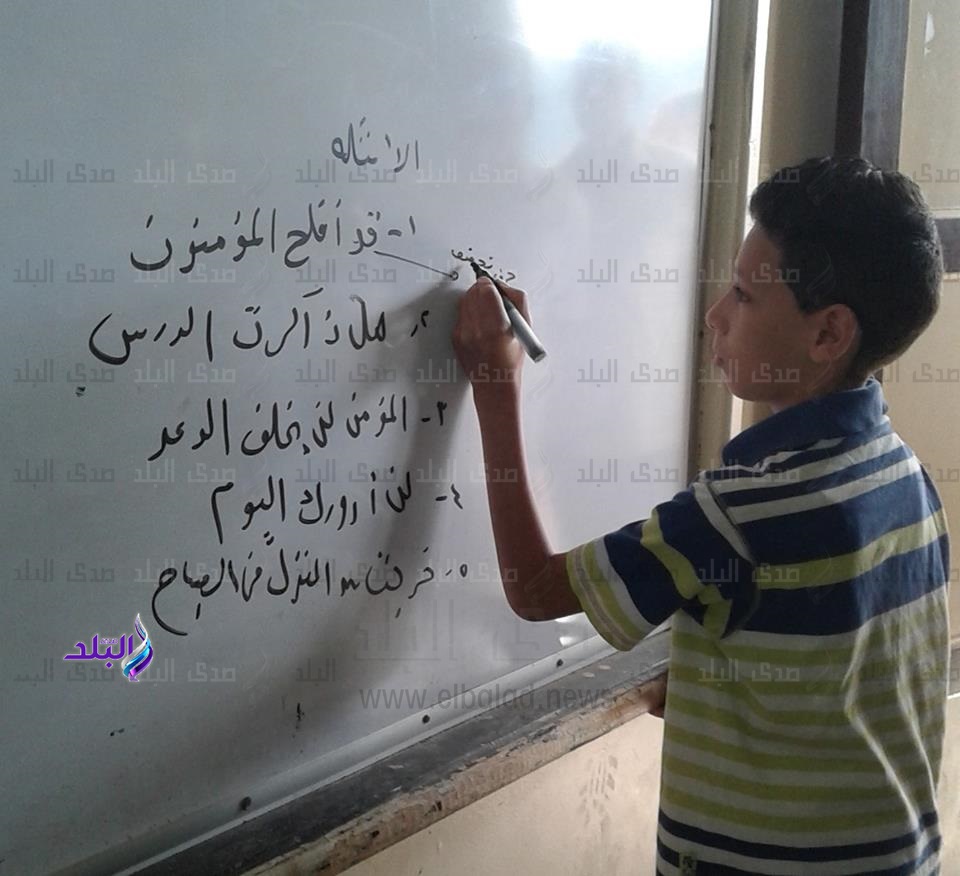 الامثله
١- قد أفلح المؤمنون
حرف تحقيق
٢- هل ذاكرت الدرس
٣- المؤمن لن يخلف الوعد
٤- لن أزورك اليوم
٥- خرجت من المنزل في الصباح
صدى البلد
www.elbalad.news